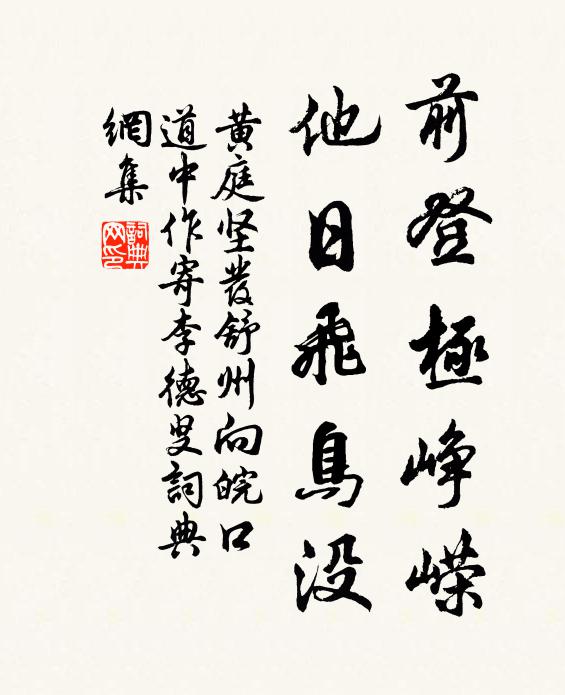 前登極峥嵘
他日飛鳥没
黄庭坚發舒州向皖口
道中作寄李德叟詞典
網集
詞典网印